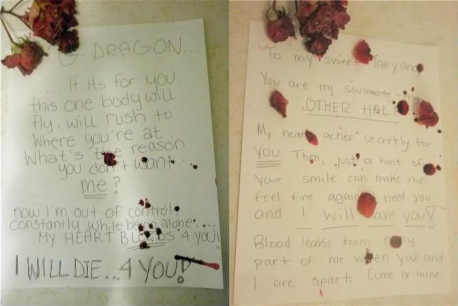 G-DRAGON...
... If its for you,
this one body will
fly. will rush to
where you're at.
What's the reason
you don't want...
me?
now I'm out of control
constantly while being alone....
MY HEART BLEEDS 4 YOU!
I WILL DIE... 4 YOU!
To my sweet Taeyang
You are my soulmate
OTHER HALF
My heart aches secretly for
YOU Then, just a hint of
your smile can make me
feel fine again I need you
and I will have you!
Blood leaks from every
part of me when you and
I are apart. Come be mine.